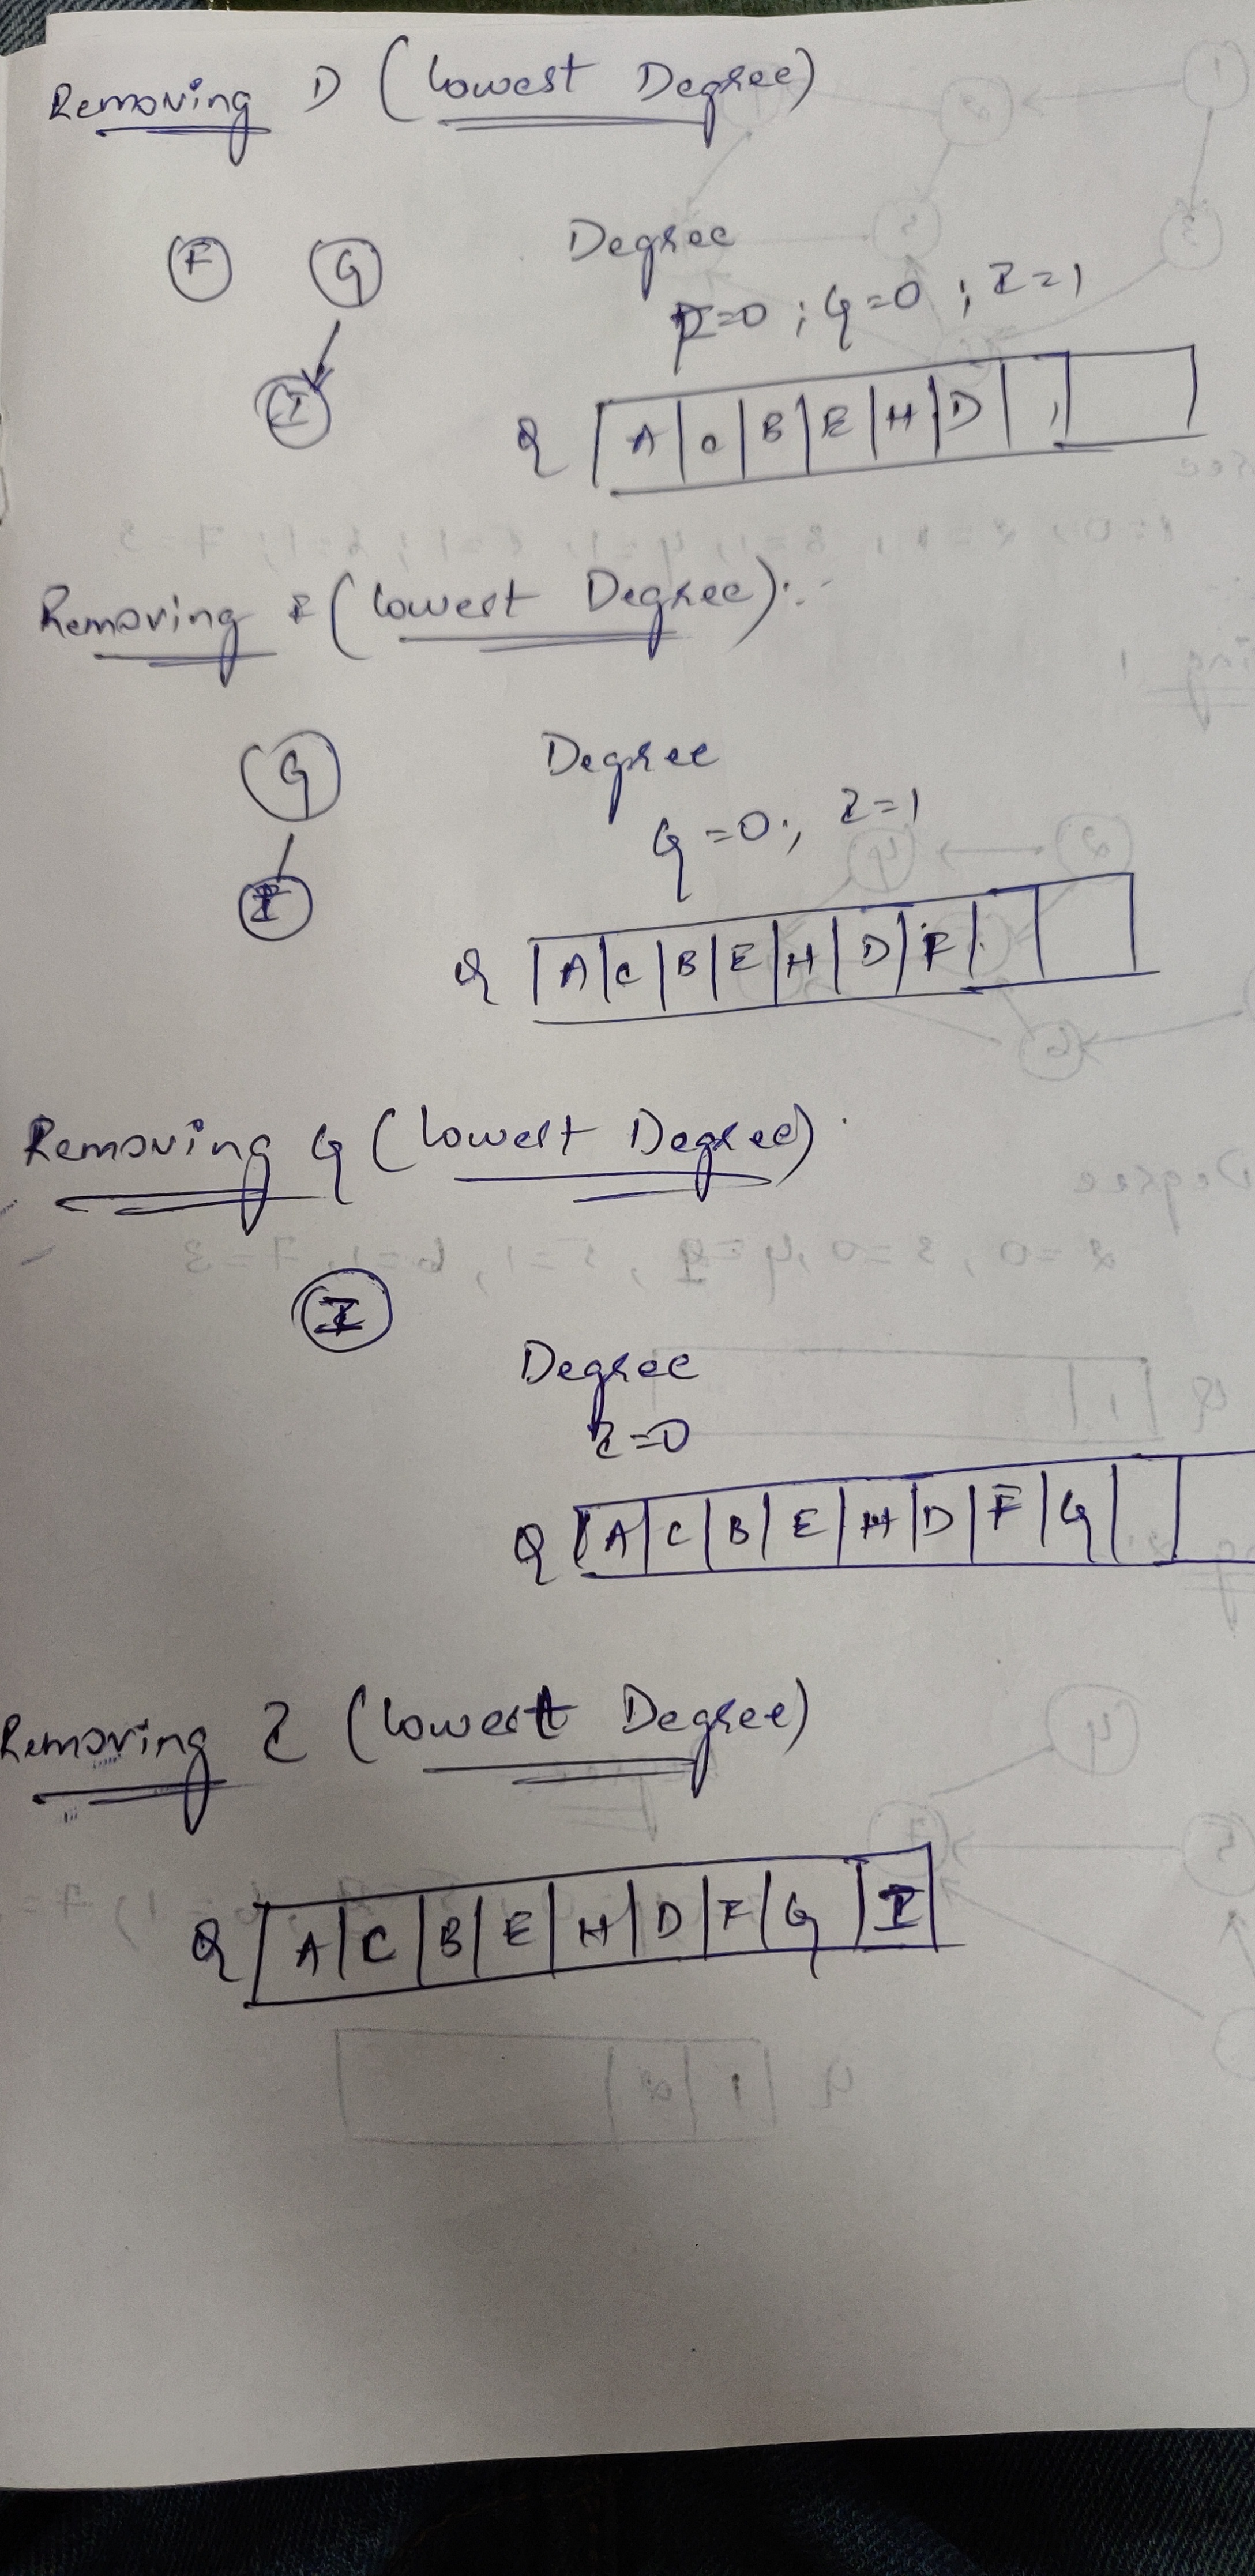 Removing D (lowest Degree)
F G
I
Degree
F=0 ; G=0 ; I=1
Q A C B E H D
Removing F (lowest Degree):-
G
I
Degree
G=0 ; I=1
Q A C B E H D F
Removing G (lowest Degree)
I
Degree
I=0
Q A C B E H D F G
Removing I (lowest Degree)
Q A C B E H D F G I